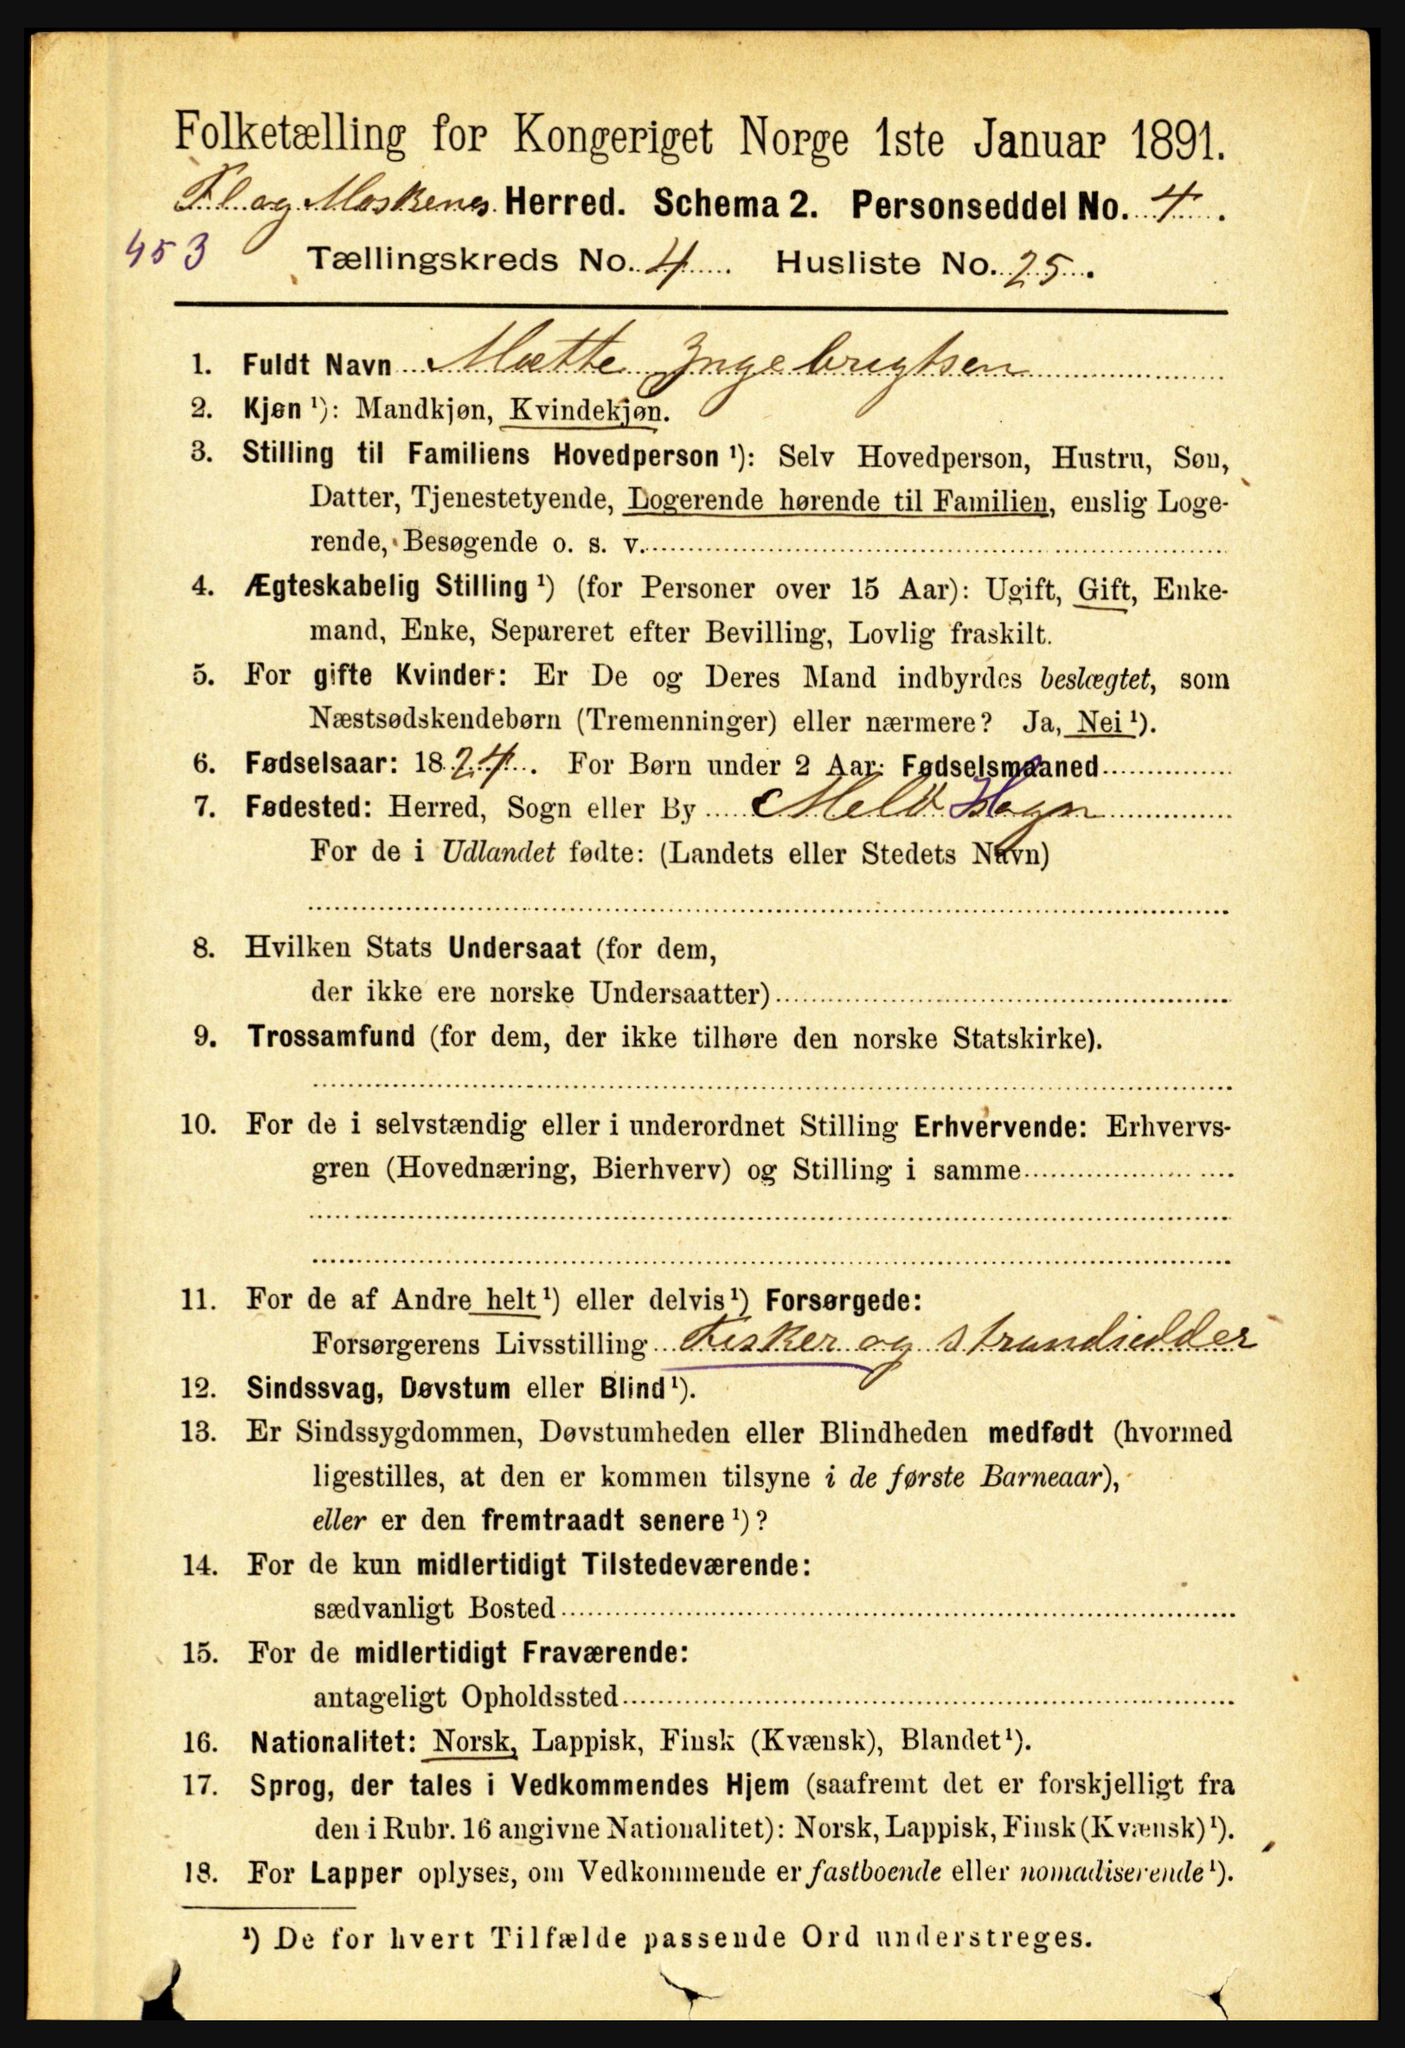 Folketælling for Kongeriget Norge 1ste Januar 1891.
Fl og Moskenes Herred. Schema 2. Personseddel No. 4.
453
Tællingskreds No. 4 Husliste No. 25.
1. Fuldt Navn Mette Ingebrigtsen
2. Kjøn ¹): Mandkjøn, Kvindekjøn.
3. Stilling til Familiens Hovedperson ¹): Selv Hovedperson, Hustru, Søn,
Datter, Tjenestetyende, Logerende hørende til Familien, enslig Loge-
rende, Besøgende o. s. v.
4. Ægteskabelig Stilling ¹) (for Personer over 15 Aar): Ugift, Gift, Enke-
mand, Enke, Separeret efter Bevilling, Lovlig fraskilt.
5. For gifte Kvinder: Er De og Deres Mand indbyrdes beslægtet, som
Næstsødskendebørn (Tremenninger) eller nærmere? Ja, Nei ¹).
6. Fødselsaar: 1824. For Børn under 2 Aar: Fødselsmaaned
7. Fødested: Herred, Sogn eller By
For de i Udlandet fødte: (Landets eller Stedets Navn)
8. Hvilken Stats Undersaat (for dem,
der ikke ere norske Undersaatter)
9. Trossamfund (for dem, der ikke tilhøre den norske Statskirke).
10. For de i selvstændig eller i underordnet Stilling Erhvervende: Erhvervs-
gren (Hovednæring, Bierhverv) og Stilling i samme
11. For de af Andre helt ¹) eller delvis ¹) Forsørgede:
Forsørgerens Livsstilling Fisker og strandsidder
12. Sindssvag, Døvstum eller Blind ¹).
13. Er Sindssygdommen, Døvstumheden eller Blindheden medfødt (hvormed
ligestilles, at den er kommen tilsyne i de første Barneaar),
eller er den fremtraadt senere ¹)?
14. For de kun midlertidigt Tilstedeværende:
sædvanligt Bosted
15. For de midlertidigt Fraværende:
antageligt Opholdssted
16. Nationalitet: Norsk, Lappisk, Finsk (Kvænsk), Blandet ¹).
17. Sprog, der tales i Vedkommendes Hjem (saafremt det er forskjelligt fra
den i Rubr. 16 angivne Nationalitet): Norsk, Lappisk, Finsk (Kvænsk) ¹).
18. For Lapper oplyses, om Vedkommende er fastboende eller nomadiserende ¹).
¹) De for hvert Tilfælde passende Ord understreges.